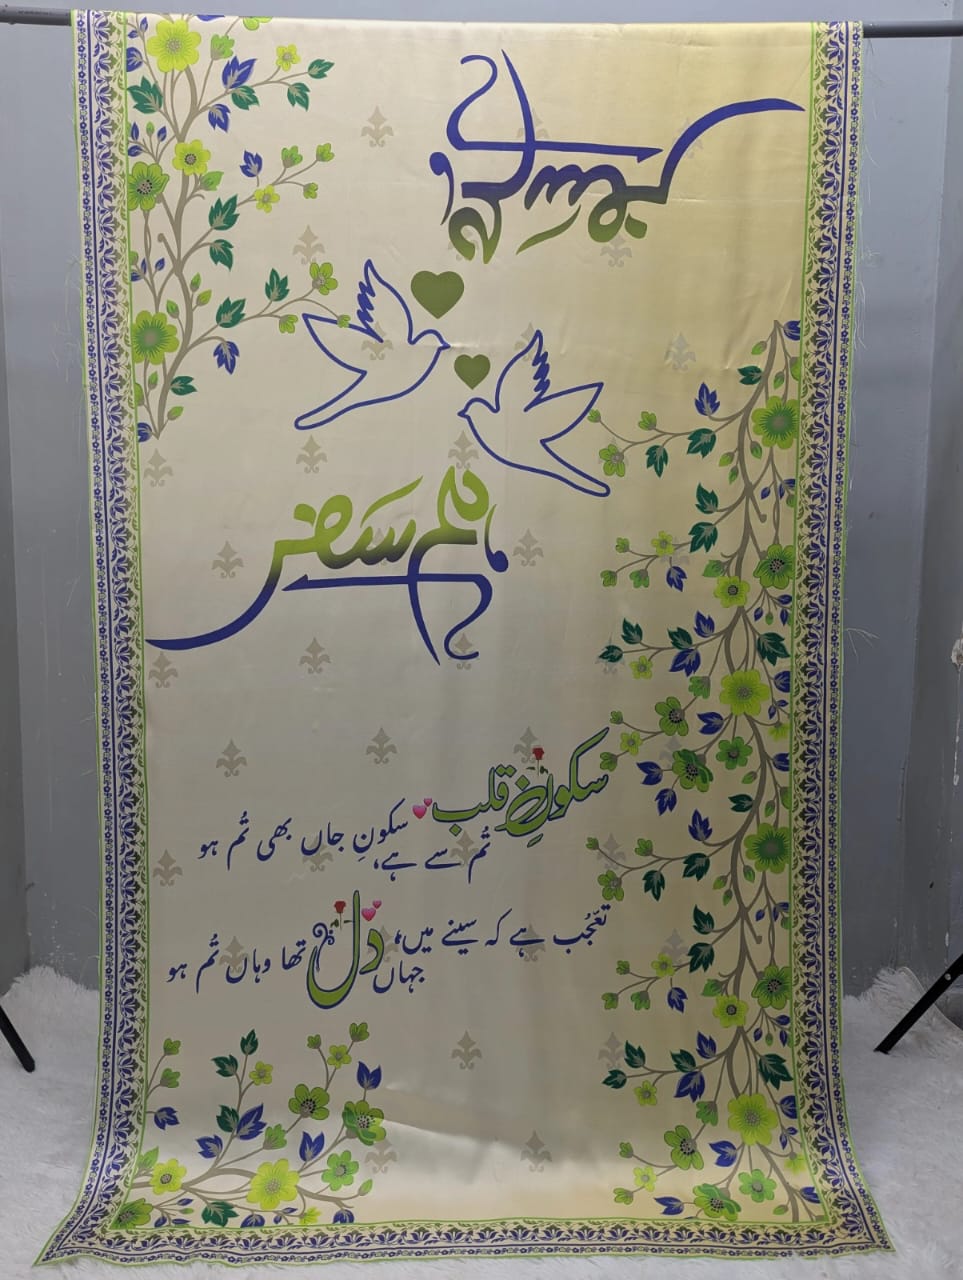 ہم سفر
سکونِ قلب تُم سے ہے، سکونِ جاں بھی تُم ہو
تعجُب ہے کہ سینے میں، جہاں دل تھا وہاں تُم ہو